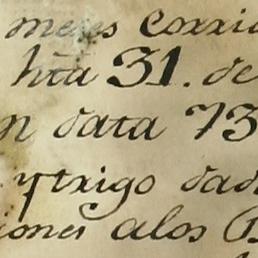 meses corri
hta 31. de
n data 73
y trigo dad
iones a los